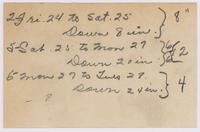 2 Fri. 24 to Sat. 25
Down 8 in. } 8"
5 Sat. 25 to Mon 27
Down 20 in. } 2
6 Mon 27 to Tues 29
Down 24 in. } 4
8